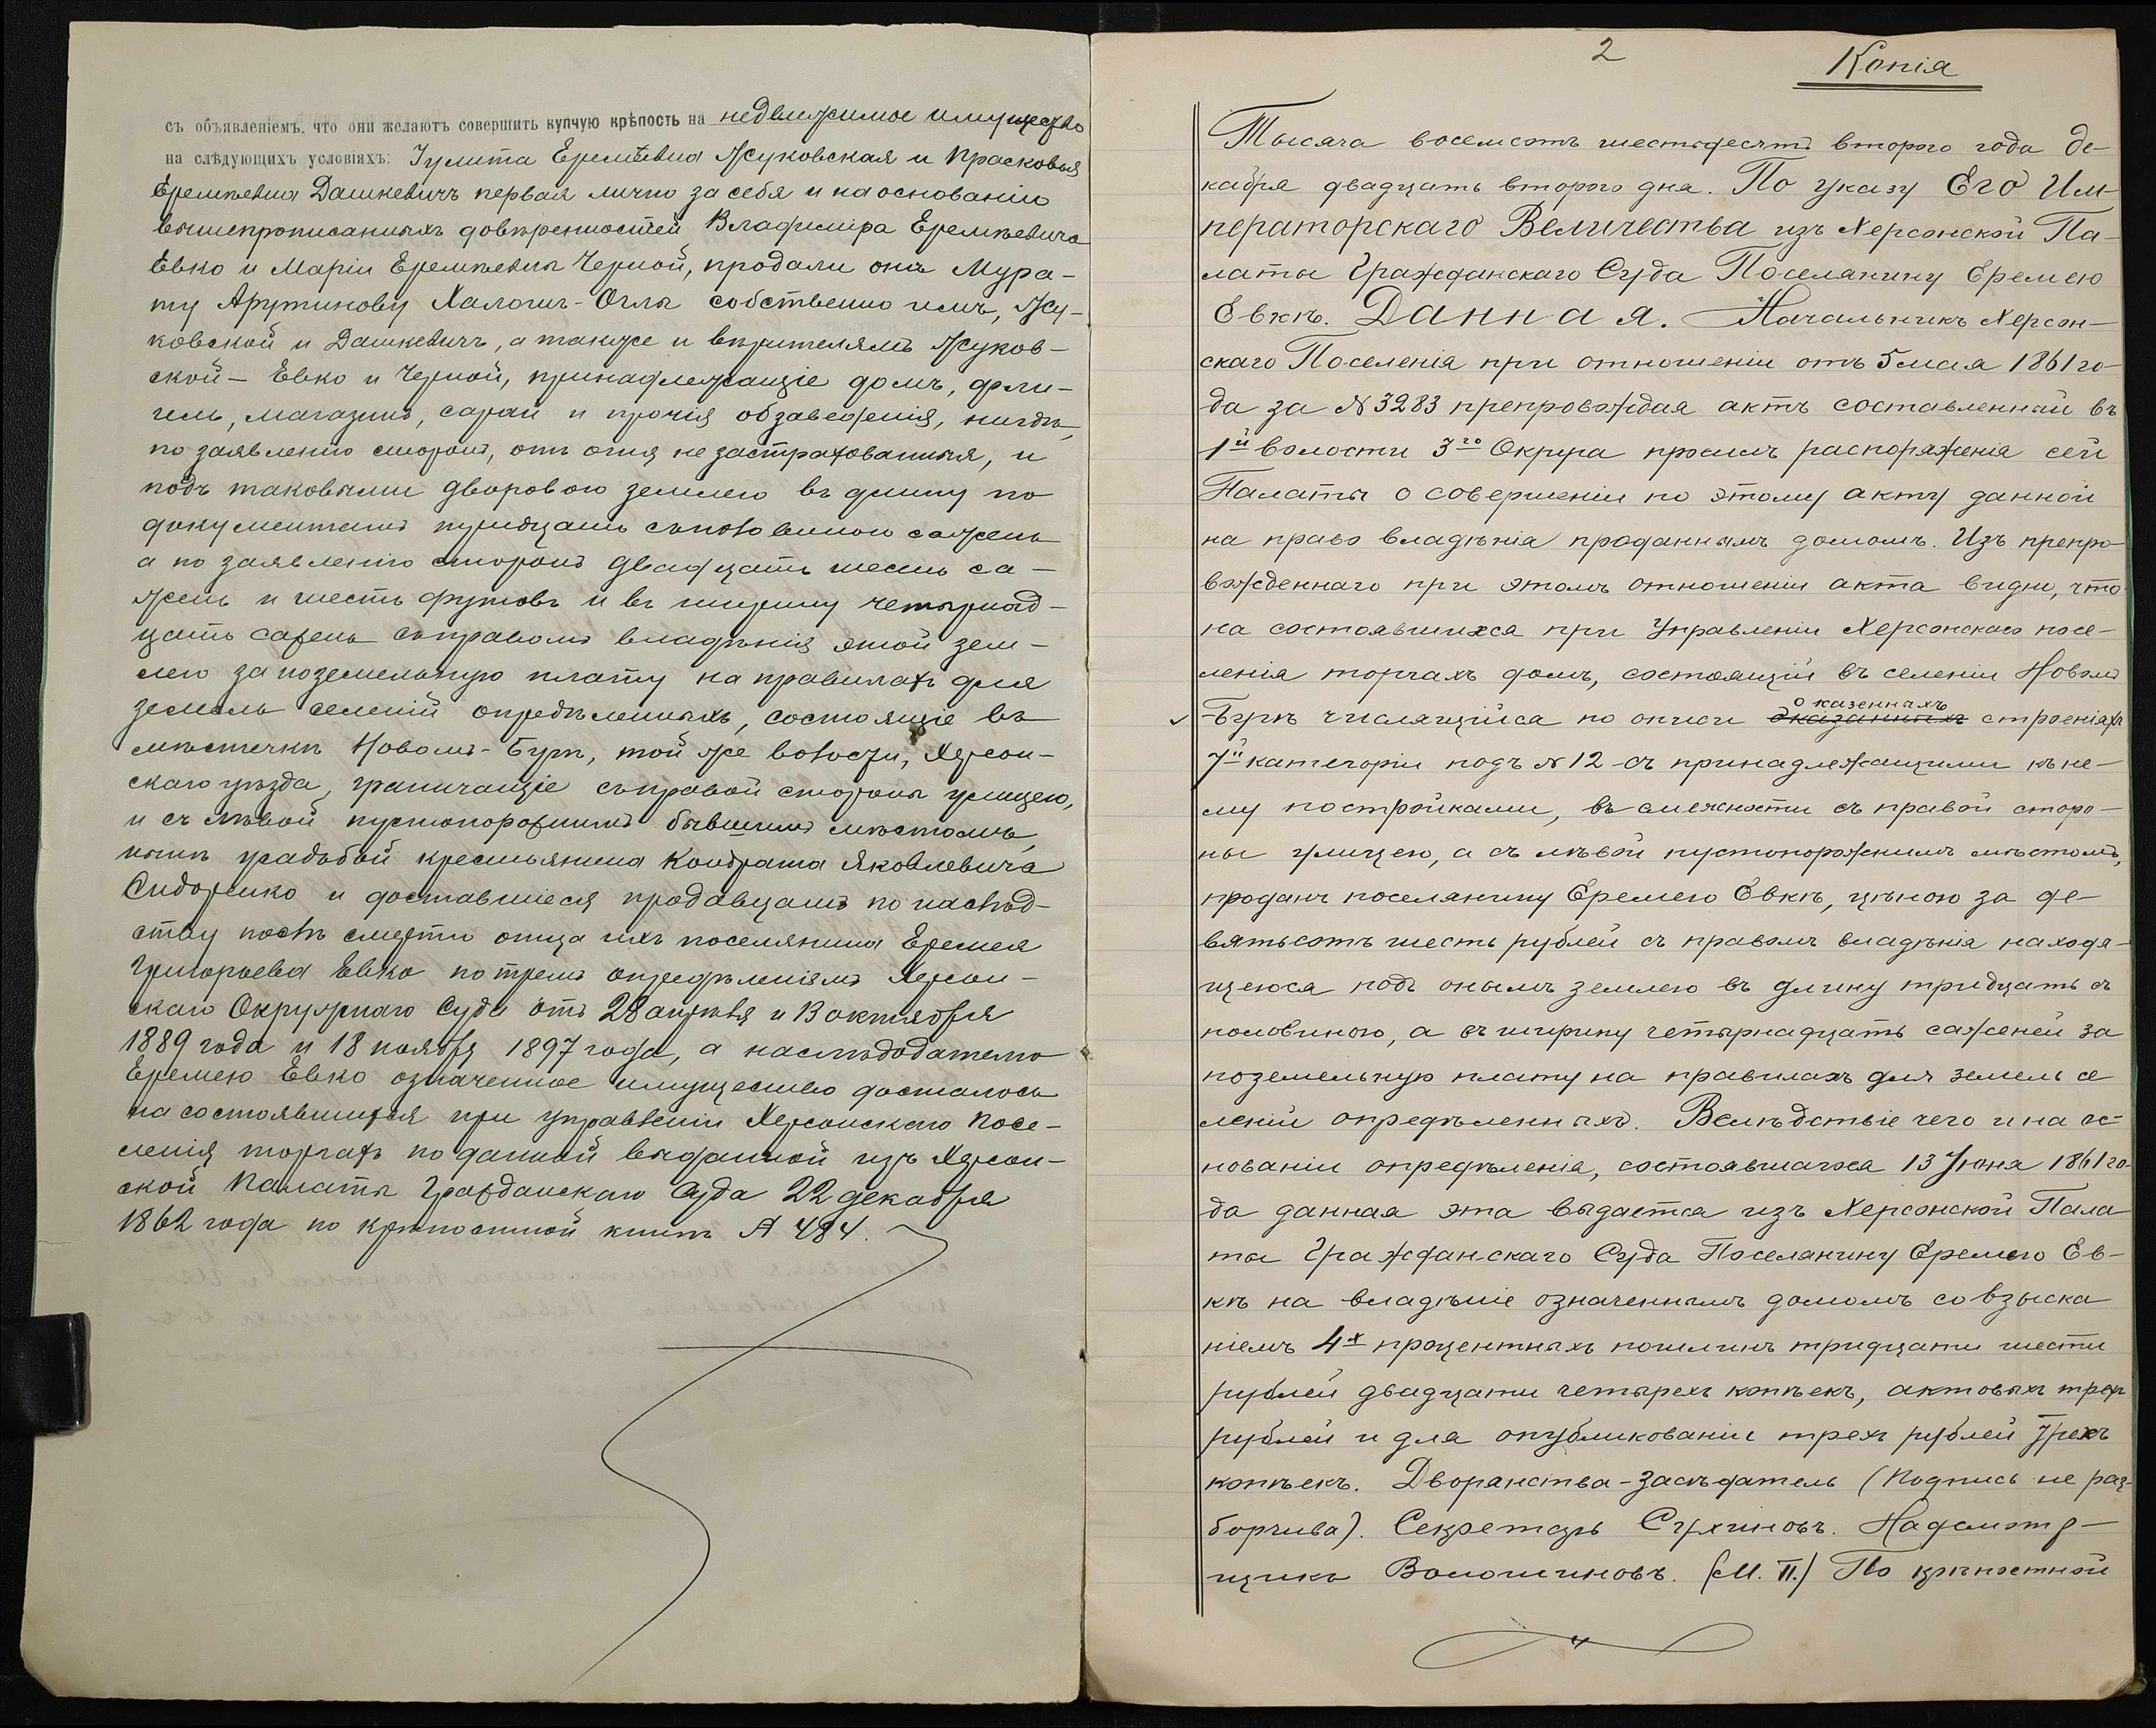 съ объявленіемъ, что они желаютъ совершить купчую крѣпость на недвижимое имущество
на слѣдующихъ условіяхъ: Іулита Еремѣевна Жуковская и Прасковья
Еремѣевна Дашкевичъ первая лично за себя и на основаніи
вышепрописанныхъ довѣренностей Владиміра Еремѣевича
Евко и Маріи Еремѣевны Черной, продали онъ Мура-
ту Арутинову Халогич-Оглы собственно имъ, Жу-
ковской и Дашкевичъ, а также и вѣрителямъ Жуков-
ской - Евко и Черной, принадлежащіе домъ, фли-
гель, магазинъ, сарай и прочія обзаведенія, нигдѣ,
по заявленію сторонъ, отъ огня не застрахованныя, и
подъ таковыми дворовою землею въ длину по
документамъ тридцать съ половиною сажень
а по заявленію сторонъ двадцать шесть са-
жень и шесть футовъ и въ ширину четырнад-
цать сажень съ правомъ владѣнія этой зем-
лею за поземельную плату на правилахъ для
земель селеній опредѣленныхъ, состоящіе въ
мѣстечкѣ Новомъ-Бугѣ, той же волости, Херсон-
скаго уѣзда, граничащіе съ правой стороны улицею,
и съ лѣвой пустопорожнимъ бывшимъ мѣстомъ,
нынѣ усадьбой крестьянина Кондрата Яковлевича
Сидоренко и доставшіеся продавцамъ по наслѣд-
ству послѣ смерти отца ихъ поселянина Еремея
Григорьева Евко по тремъ опредѣленіямъ Херсон-
скаго Окружнаго Суда отъ 28 апрѣля и 13 октября
1889 года и 18 ноября 1897 года, а наслѣдодателю
Еремею Евко означенное имущество досталось
на состоявшихся при управленіи Херсонскаго Посе-
ленія торгахъ по данной выданной изъ Херсон-
ской Палаты Гражданскаго Суда 22 декабря
1862 года по крѣпостной книгѣ № 484.
2
Копія
Тысяча восемсотъ шестьдесятъ второго года де-
кабря двадцать второго дня. По указу Его Им-
ператорскаго Величества изъ Херсонской Па-
латы Гражданскаго Суда Поселянину Еремею
Евкѣ. Данная. Начальникъ Херсон-
скаго Поселенія при отношеніи отъ 5 мая 1861 го-
да за № 3283 препровождая актъ составленный въ
1й волости 3го Округа просилъ распоряженія сей
Палаты о совершеніи по этому акту данной
на право владѣнія проданнымъ домомъ. Изъ препро-
вожденнаго при этомъ отношеніи акта видно, что
на состоявшихся при Управленіи Херсонскаго посе-
ленія торгахъ домъ, состоящій въ селеніи Новомъ
о казенныхъ
Бугѣ числящійся по описи оказанныхъ строеніяхъ
7й категоріи подъ № 12 съ принадлежащими къ не-
му постройками, въ смежности съ правой сторо-
ны улицею, а съ лѣвой пустопорожнимъ мѣстомъ,
проданъ поселянину Еремею Евкѣ, цѣною за де-
вятьсотъ шесть рублей съ правомъ владѣнія находя-
щеюся подъ онымъ землею въ длину тридцать съ
половиною, а въ ширину четырнадцать саженей за
поземельную плату на правилахъ для земель се
леній опредѣленныхъ. Вслѣдствіе чего и на ос-
нованіи опредѣленія, состоявшагося 13 Іюня 1861 го-
да данная эта выдается изъ Херсонской Пала
ты Гражданскаго Суда Поселянину Еремею Ев-
кѣ на владѣніе означеннымъ домомъ со взыска
ніемъ 4х процентныхъ пошлинъ тридцати шести
рублей двадцати четырехъ копѣекъ, актовыхъ трехъ
рублей и для опубликованіе трехъ рублей трехъ
копѣекъ. Дворянства-Засѣдатель (Подпись не раз-
борчива). Секретарь Сухиновъ. Надсмотр-
щикъ Волошиновъ. (М. П.) По крѣпостной